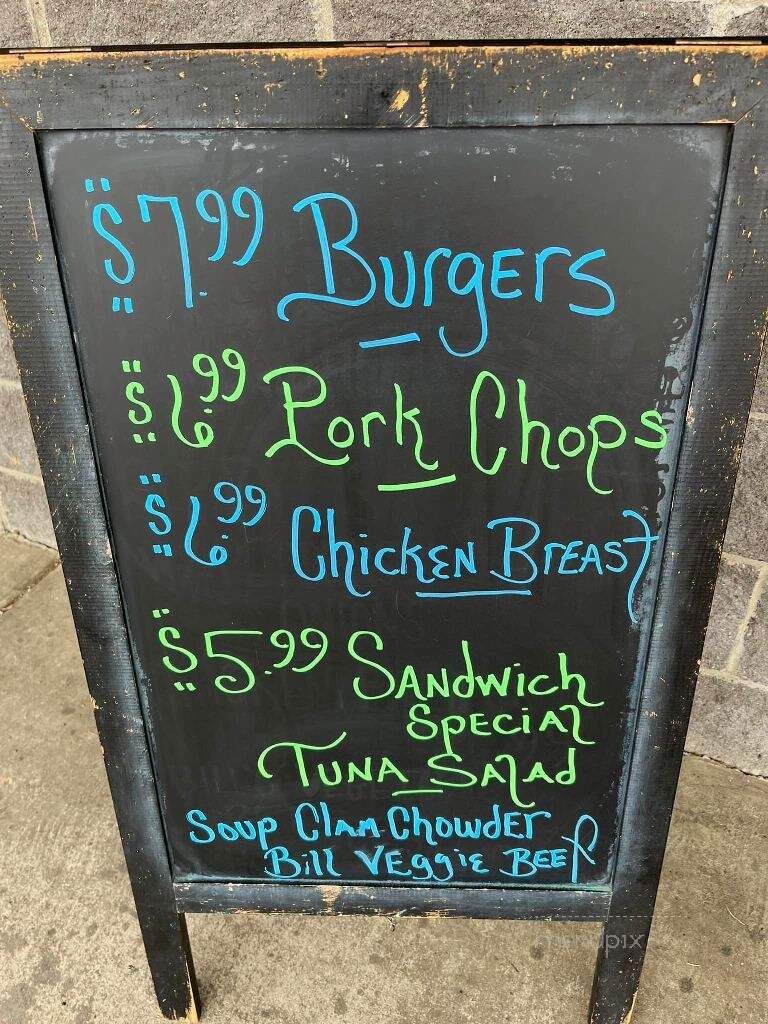 $7.99 Burgers
$6.99 Pork Chops
$6.99 Chicken Breast
$5.99 Sandwich
Special
Tuna Salad
Soup Clam Chowder
Bill Veggie Beef
menupix